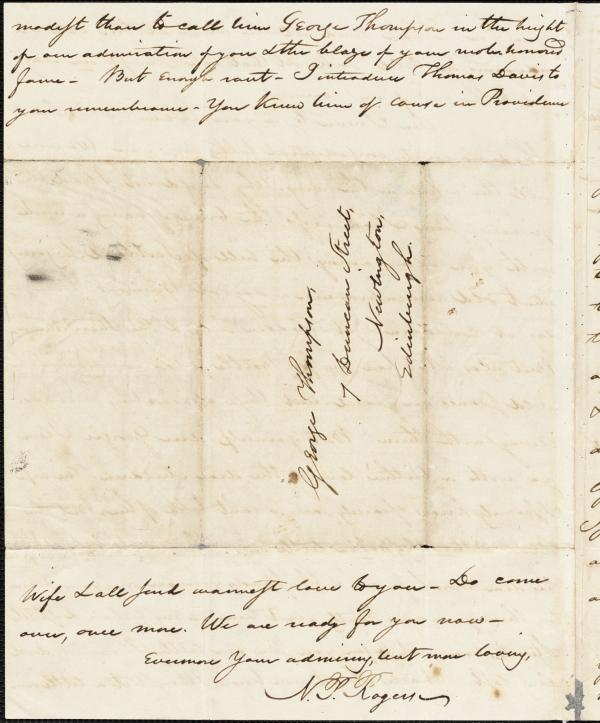 modest than to call him George Thompson in the height
of our admiration of you & the blaze of your most honored
fame — But enough rant — I introduce Thomas Davis to
your remembrance — You knew him of course in Providence
George Thompson,
7 Duncan Street,
Newington,
Edinburgh.
Wife & all send warmest love to you — Do come
over, once more. We are ready for you now —
Evermore Your admiring, but more loving,
N. P. Rogers